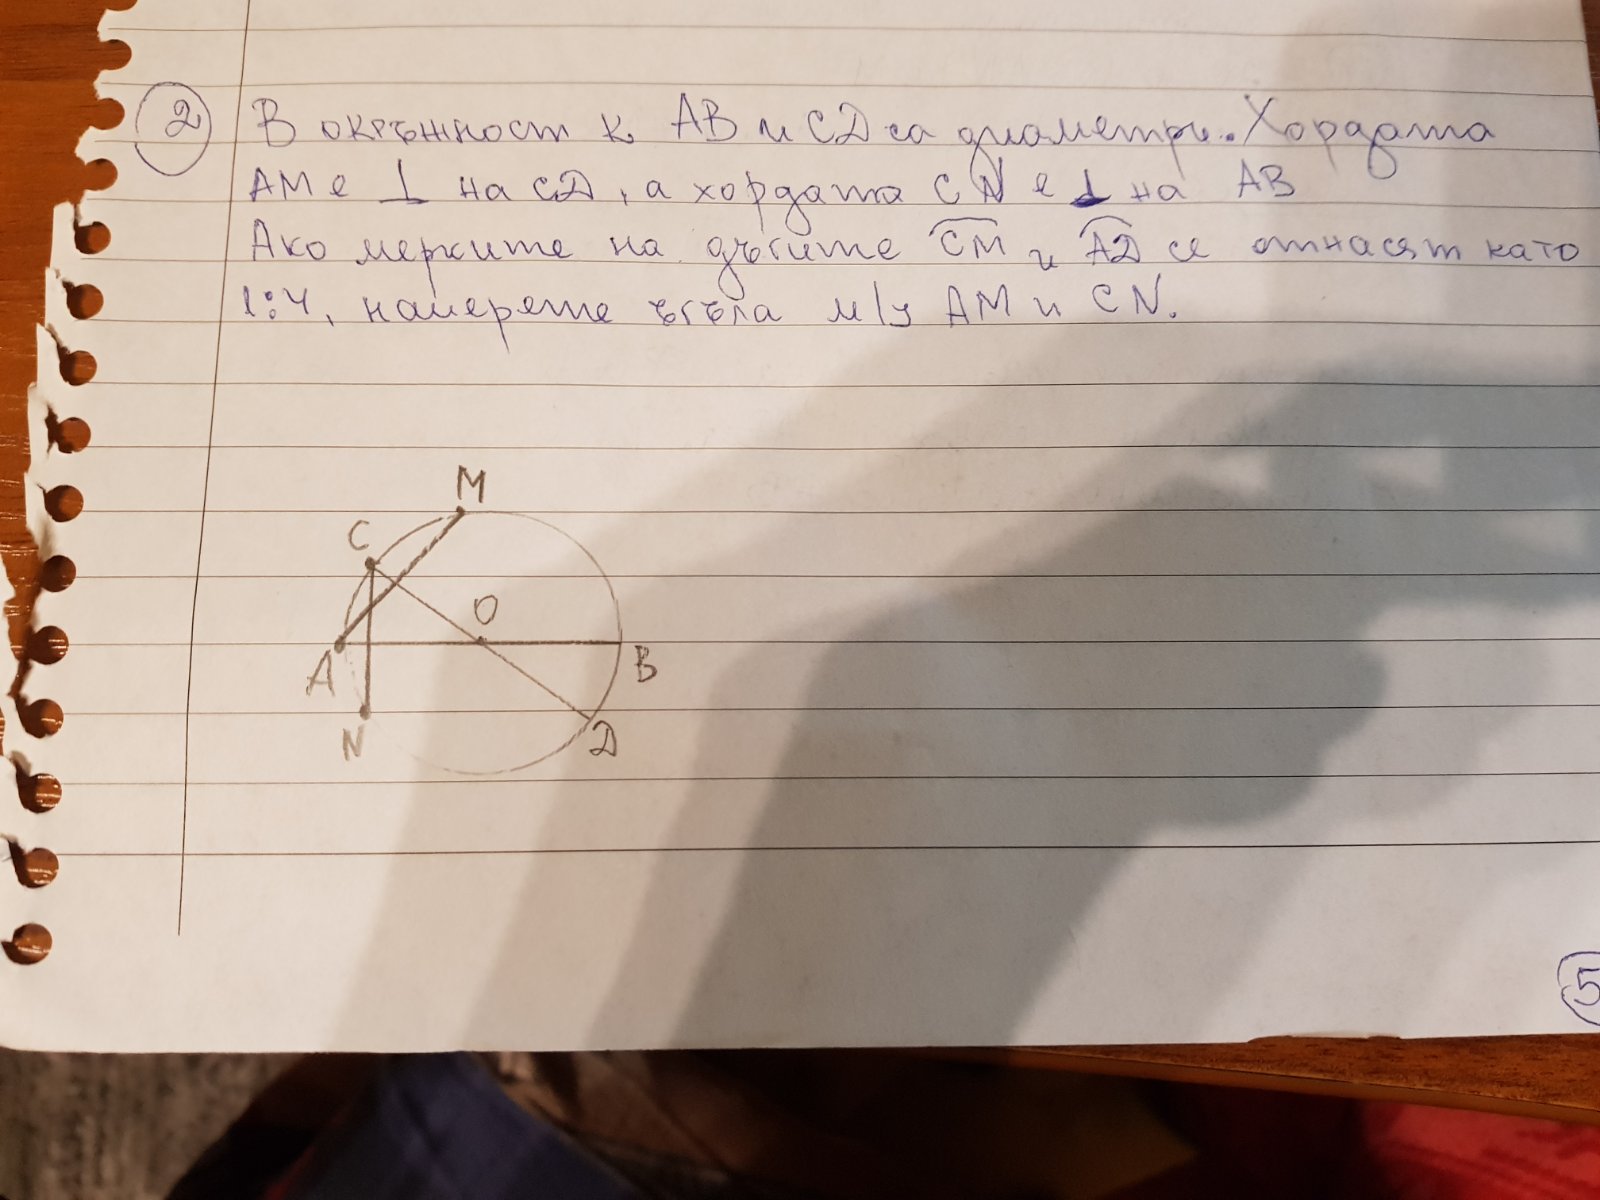 2 В окръжност k AB и CD са диаметри. Хордата
AM е ⊥ на CD, а хордата CN е ⊥ на AB
Ако мерките на дъгите CM и AD се отнасят като
1:4, намерете ъгъла м/у AM и CN.
M
C
O
A
B
N
D
5